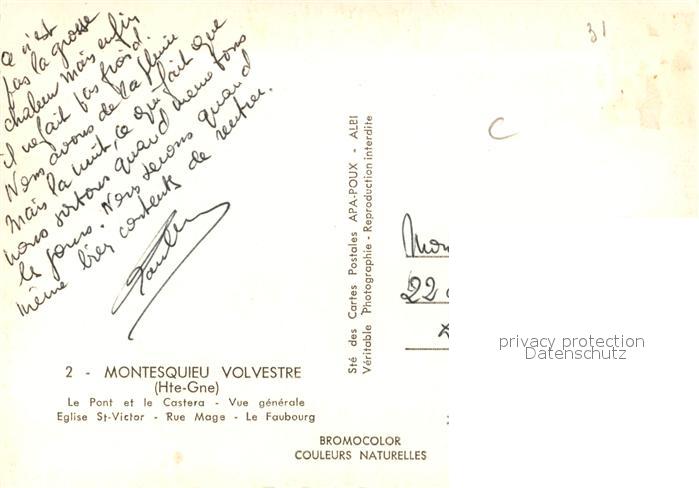 Ce n'est
pas la grosse
chaleur mais enfin
il ne fait pas froid.
Nous avons de la pluie
mais la nuit, ce qui fait que
nous sortons quand même tous
les jours. Nous serons quand
même très contents de rentrer.
31
C
Sté des Cartes Postales APA-POUX - ALBI
Véritable Photographie - Reproduction interdite
Mon
22
privacy protection
Datenschutz
2 - MONTESQUIEU VOLVESTRE
(Hte-Gne)
Le Pont et le Castera - Vue générale
Eglise St-Victor - Rue Mage - Le Faubourg
BROMOCOLOR
COULEURS NATURELLES